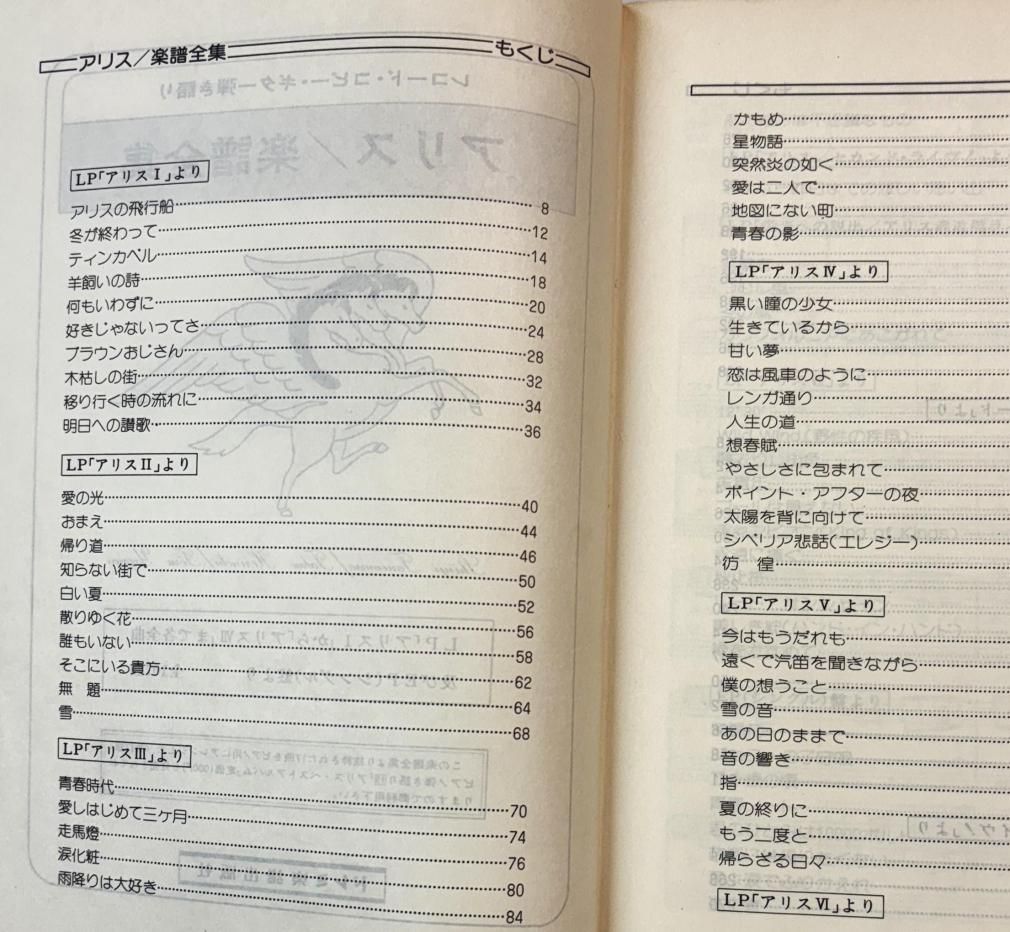 アリス／楽譜全集 もくじ
LP「アリスⅠ」より
アリスの飛行船 8
冬が終わって 12
ティンカベル 14
羊飼いの詩 18
何もいわずに 20
好きじゃないってさ 24
ブラウンおじさん 28
木枯しの街 32
移り行く時の流れに 34
明日への讃歌 36
LP「アリスⅡ」より
愛の光 40
おまえ 44
帰り道 46
知らない街で 50
白い夏 52
散りゆく花 56
誰もいない 58
そこにいる貴方 62
無　題 64
雪 68
LP「アリスⅢ」より
青春時代 70
愛しはじめて三ヶ月 74
走馬燈 76
涙化粧 80
雨降りは大好き 84
かもめ
星物語
突然炎の如く
愛は二人で
地図にない町
青春の影
LP「アリスⅣ」より
黒い瞳の少女
生きているから
甘い夢
恋は風車のように
レンガ通り
人生の道
想春賦
やさしさに包まれて
ポイント・アフターの夜
太陽を背に向けて
シベリア悲話(エレジー)
彷　徨
LP「アリスⅤ」より
今はもうだれも
遠くで汽笛を聞きながら
僕の想うこと
雪の音
あの日のままで
音の響き
指
夏の終りに
もう二度と
帰らざる日々
LP「アリスⅥ」より